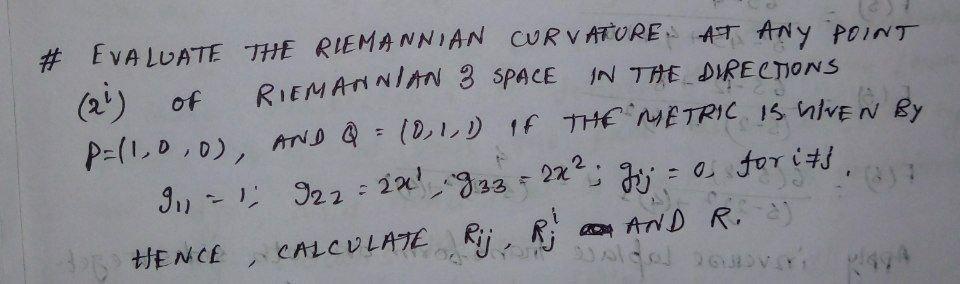 # EVALUATE THE RIEMANNIAN CURVATURE AT ANY POINT
(xⁱ) OF RIEMANNIAN 3 SPACE IN THE DIRECTIONS
P=(1,0,0), AND Q = (0,1,1) IF THE METRIC IS GIVEN BY
g₁₁ = 1; g₂₂ = 2x¹; g₃₃ = 2x²; gᵢⱼ = 0, for i≠j.
HENCE, CALCULATE Rᵢⱼ, Rⁱⱼ AND R.